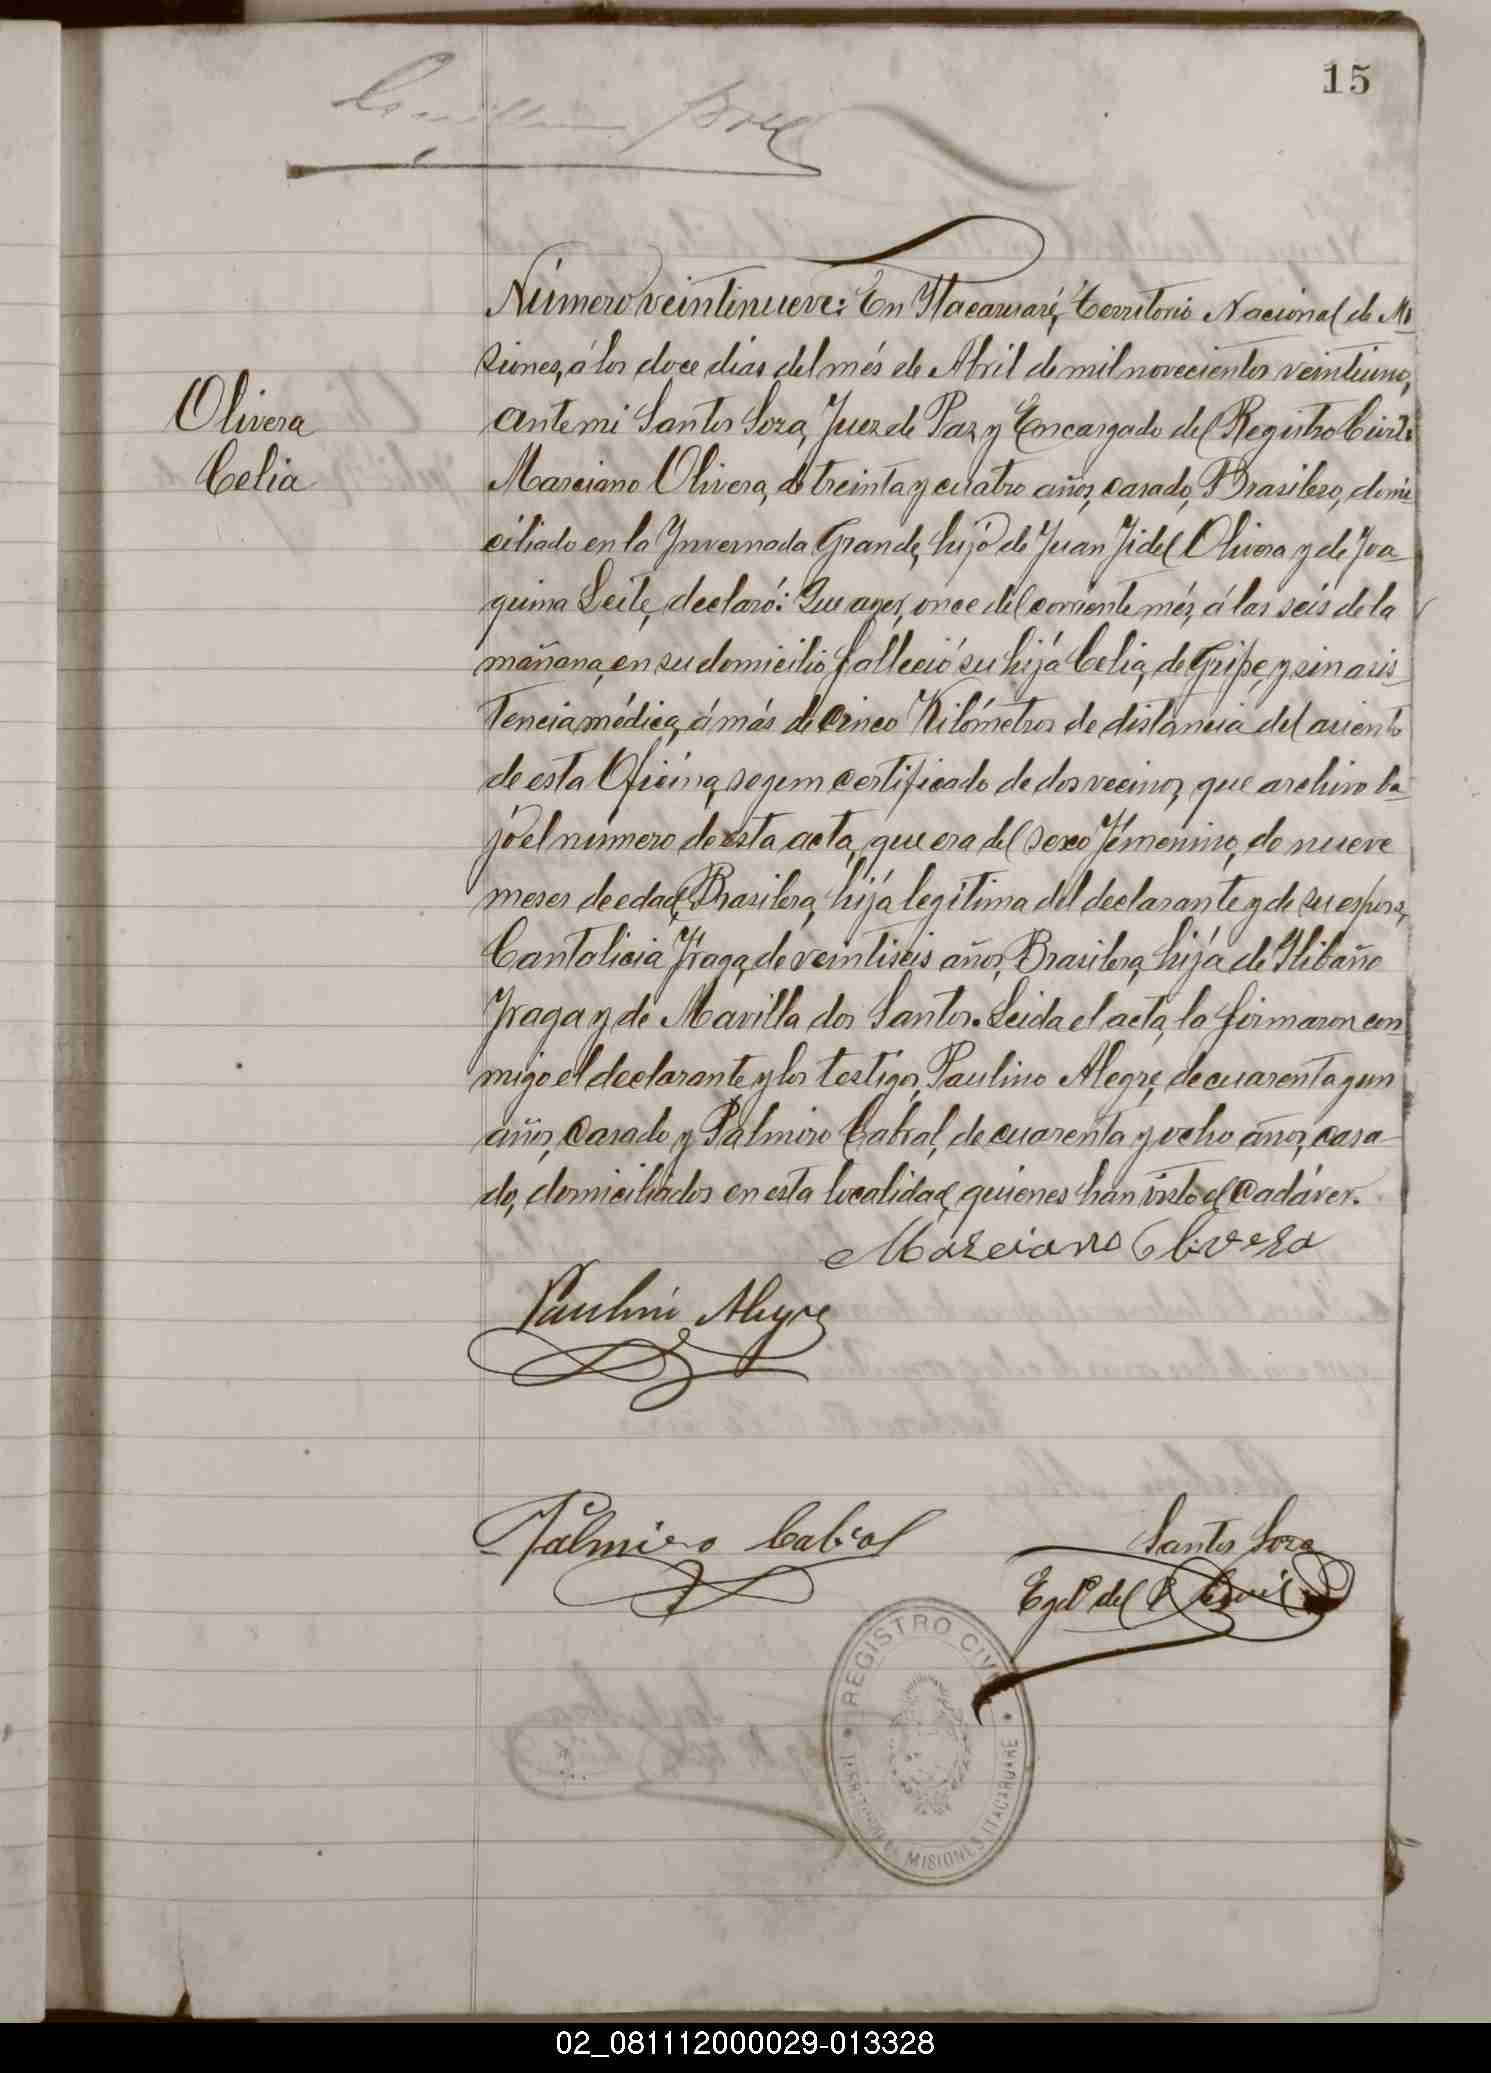 15
Número veintinueve: En Itacaruaré, Territorio Nacional de Mi
siones, á los doce dias del més de Abril de mil novecientos veintiuno,
Olivera
ante mi Santos Soza, Juez de Paz y Encargado del Registro Civil:
Celia
Marciano Olivera, de treinta y cuatro años, casado, Brasilero, domi
ciliado en la Invernada Grande, hijo de Juan Fidel Olivera y de Joa
quina Leite, declaró: Que ayer, once del corriente més, á las seis de la
mañana, en su domicilio falleció su hijá Celia, de Gripe, y sin asis
tencia médica, á más de cinco Kilómetros de distancia del asiento
de esta Oficina, segun certificado de dos vecinos, que archivo ba
jo el número de esta acta, que era del sexo Fémenino, de nueve
meses de edad, Brasilera, hijá legítima del declarante y de su esposa,
Cantalicia Fraga, de veintiseis años, Brasilera, hijá de
Fraga y de Mavilla dos Santos. Leida el acta, la firmaron con
migo el declarante y los testigos, Paulino Alegre, de cuarenta y un
años, casado y Palmiro Cabral, de cuarenta y ocho años, casa
do, domiciliados en esta localidad, quienes han visto el Cadáver.
Marciano Olivera
Paulino Alegre
Palmiro Cabral
Santos Soza
Egdo del R Civil
REGISTRO CIVIL
TERRITORIO DE MISIONES ITACARUARE
02_081112000029-013328